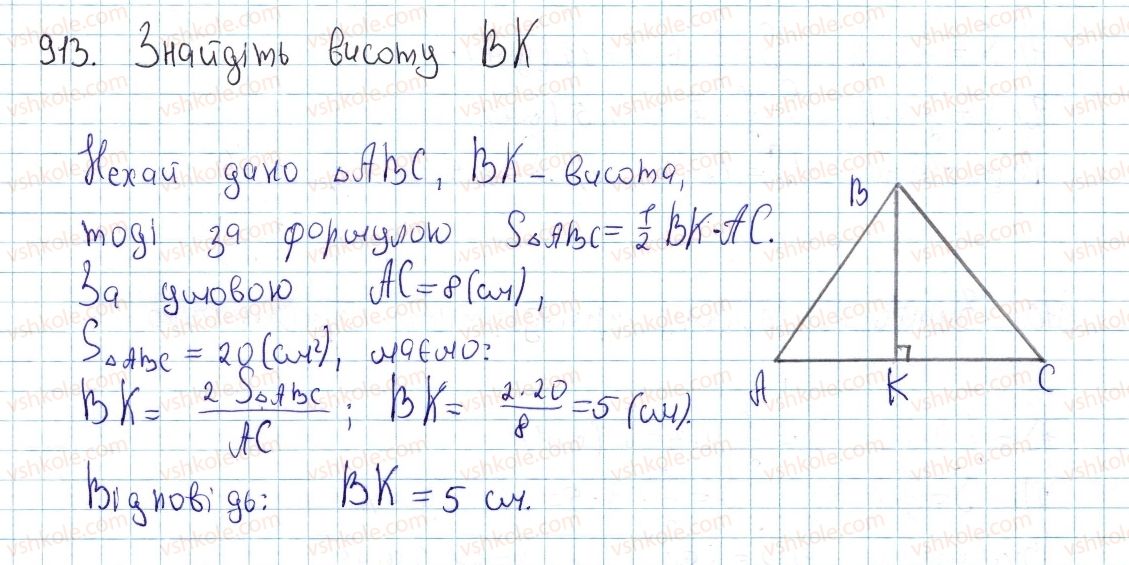 913. Знайдіть висоту BK
Нехай дано △ABC, BK - висота,
тоді за формулою S△ABC = 1/2 BK·AC.
За умовою AC = 8 (см),
S△ABC = 20 (см²), маємо:
BK = 2S△ABC / AC ; BK = 2·20 / 8 = 5 (см).
Відповідь: BK = 5 см.
B
A K C
vshkole.com